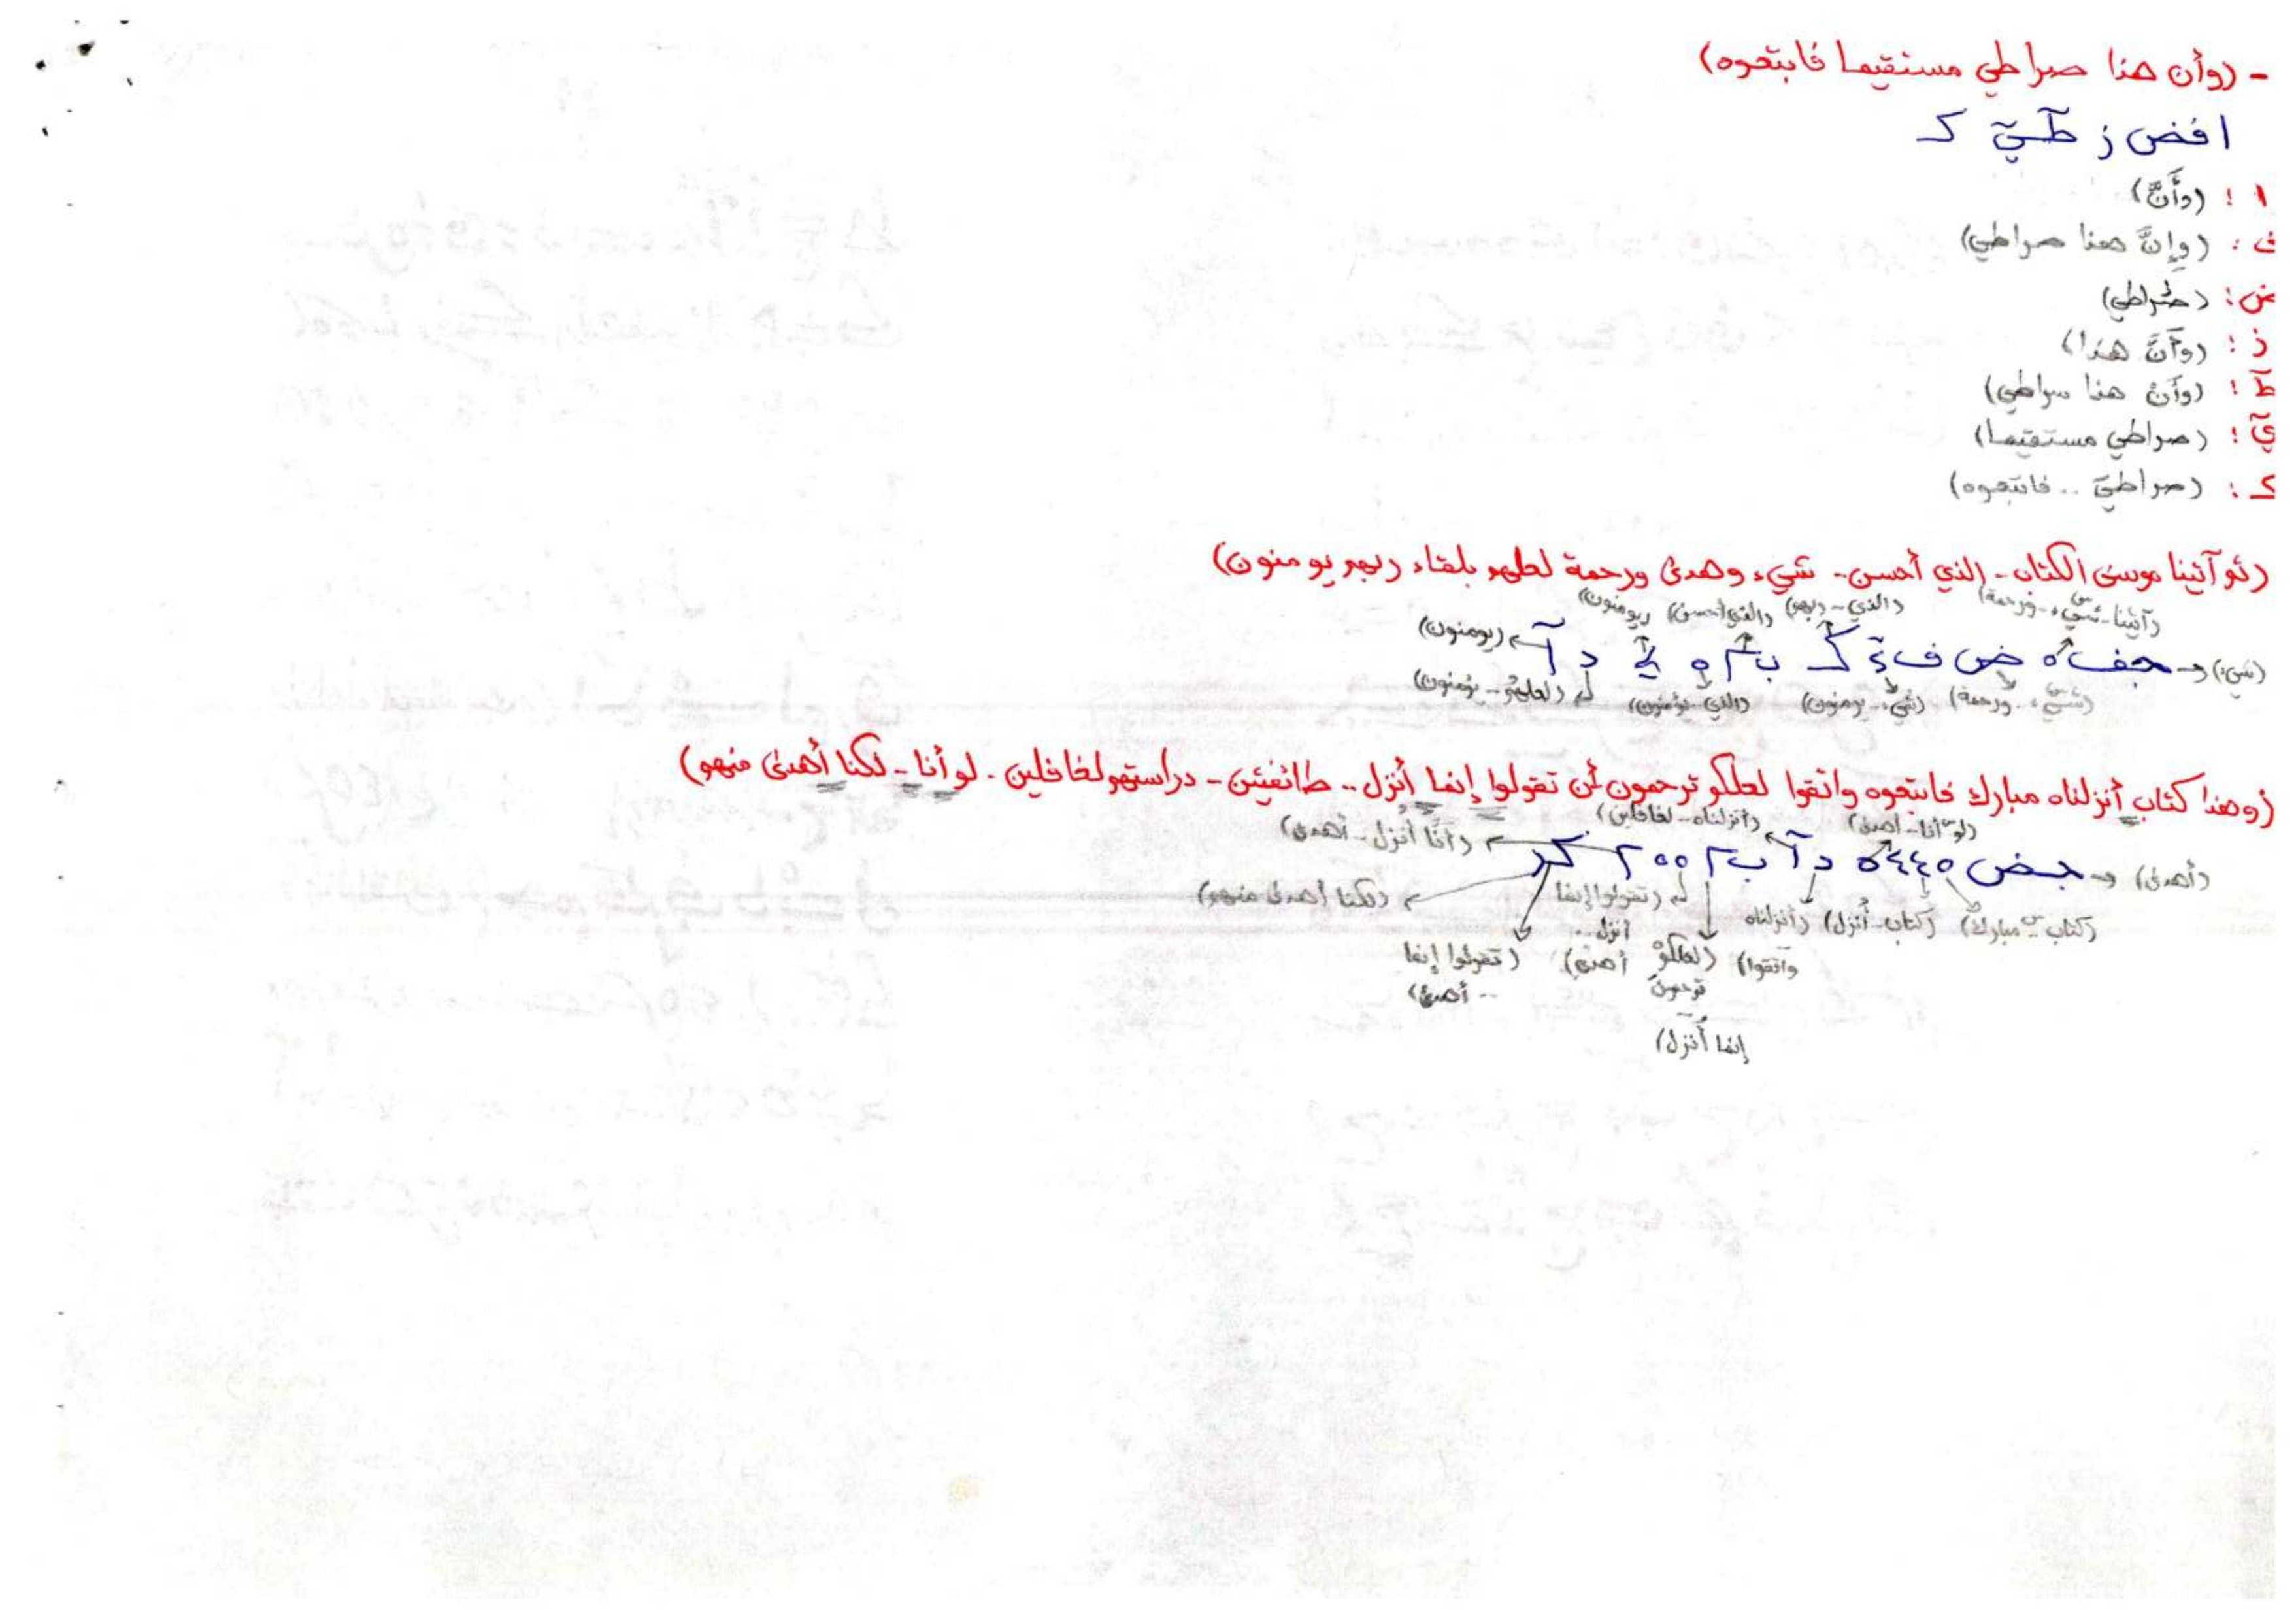 - (وأن هذا صراطي مستقيما فاتبعوه)
افض ز طـيٓ كـ
ا : (وأَنَّ)
ف : (وإِنَّ هذا صراطي)
ض : (صراطي)
ز : (وأَنَّ هذا)
ط : (وأَنْ هذا سراطي)
يٓ : (صراطي مستقيما)
كـ : (صراطيَ .. فاتبعوه)
(ثم آتينا موسى الكتاب - الذي أحسن - شيء وهدى ورحمة لعلهم بلقاء ربهم يومنون)
(آتينا - شيء - ورحمة) (الذي - ربهم) (الذي أحسن) (يومنون)
(شيء) جفـ ه ض ف كـ ب م ه د آ (يومنون)
(شيء .. ورحمة) (شيء .. يومنون) (الذي - يؤمنون) (لعلهم - يؤمنون)
(وهذا كتاب أنزلناه مبارك فاتبعوه واتقوا لعلكم ترحمون أن تقولوا إنما أنزل .. طائفتين - دراستهم لغافلين - لو أنا - لكنا أهدى منهم)
(لو أنا - أهدى) (أنزلناه - لغافلين) (أنا أنزل - أهدى)
(أهدى) جـض ه ٤٤ ه د آ ب م ه ه م كـ
(كتاب مبارك) (كتاب - أنزل) (أنزلناه (تقولوا إنما (لكنا أهدى منهم)
واتقوا) (لعلكم أنزل .. أهدى) (تقولوا إنما
ترحمون .. أهدى)
إنما أنزل)